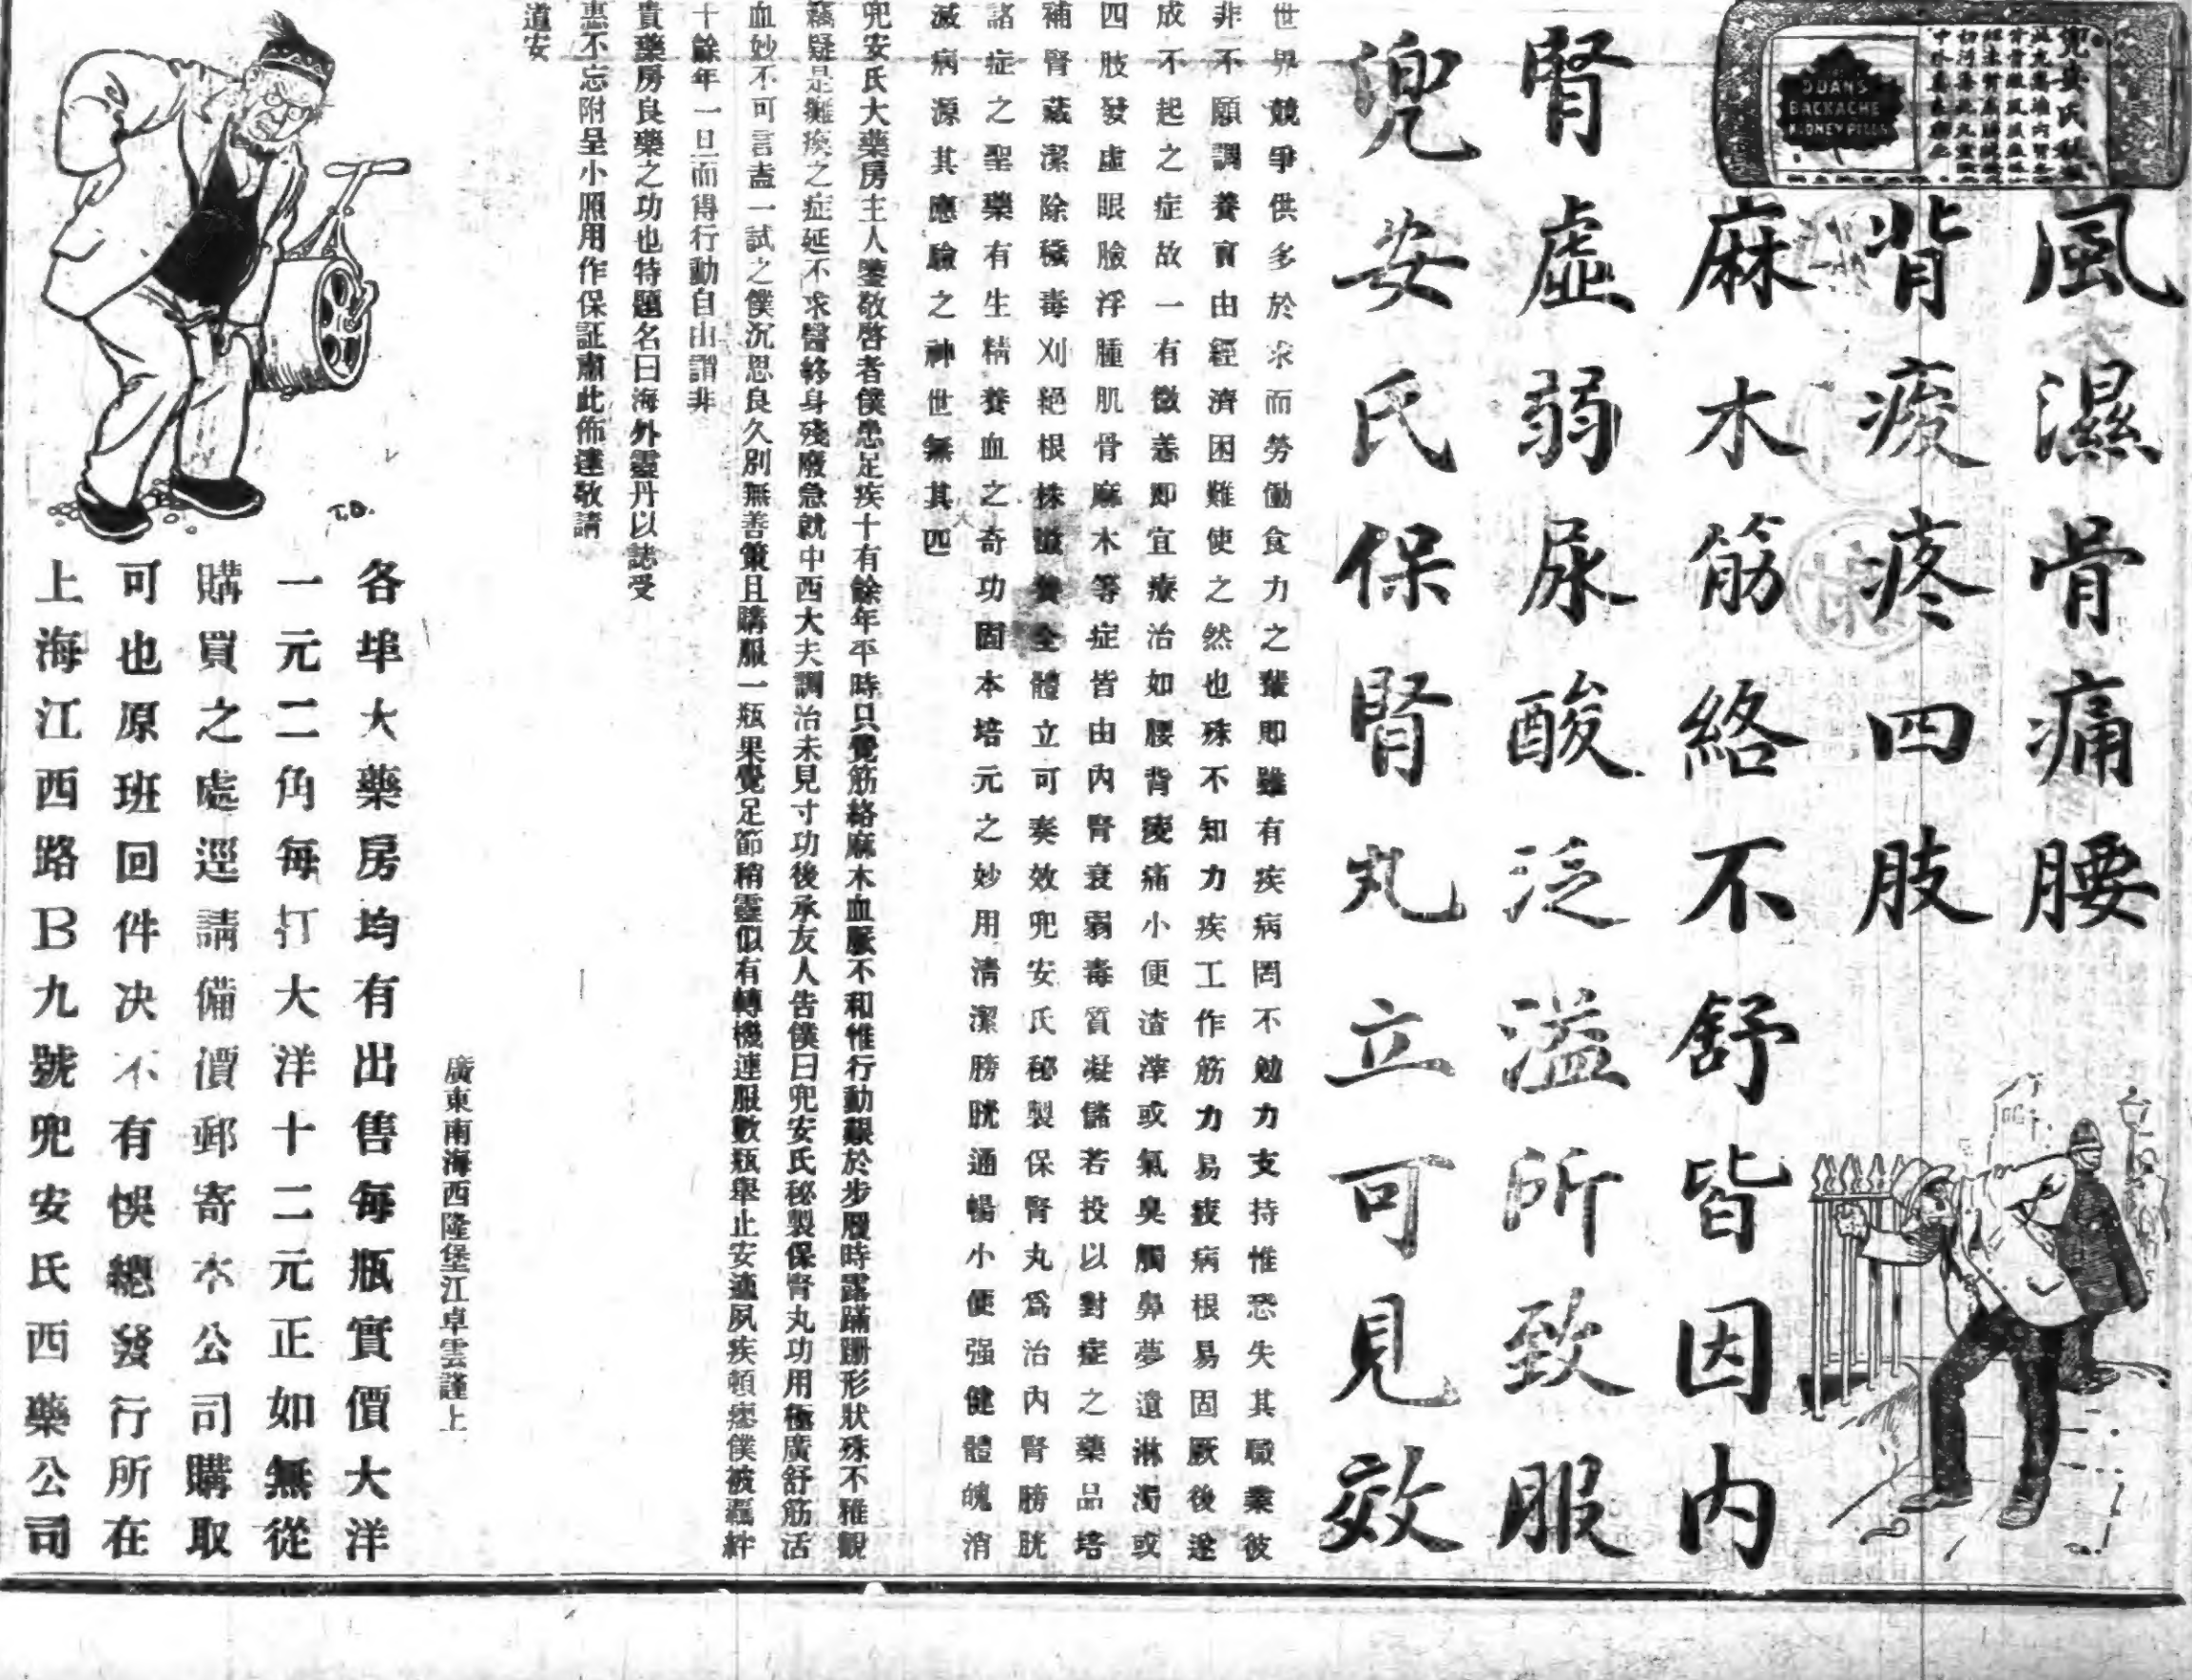 DOAN'S
BACKACHE
KIDNEY PILLS
風濕骨痛腰
背痠疼四肢
麻木筋絡不舒皆因內
腎虛弱尿酸泛溢所致服
兜安氏保腎丸立可見效
世界競爭供多於求而勞働食力之輩即雖有疾病罔不勉力支持惟恐失其職業彼
非不願調養實由經濟困難使之然也殊不知力疾工作筋力易疲病根易固厥後遂
成不起之症故一有微恙即宜療治如腰背痠痛小便渣滓或氣臭觸鼻夢遺淋濁或
四肢發虛眼臉浮腫肌骨麻木等症皆由內腎衰弱毒質凝儲若投以對症之藥品培
補腎藏潔除穢毒刈絕根株滋養全體立可奏效兜安氏秘製保腎丸為治內腎膀胱
諸症之聖藥有生精養血之奇功固本培元之妙用清潔膀胱通暢小便强健體魄消
滅病源其應驗之神世無其匹
兜安氏大藥房主人鑒敬啓者僕患足疾十有餘年平時只覺筋絡麻木血脈不和惟行動艱於步履時露蹣跚形狀殊不雅觀
竊疑是癱瘓之症延不求醫終身殘廢急就中西大夫調治未見寸功後承友人告僕曰兜安氏秘製保腎丸功用極廣舒筋活
血妙不可言盍一試之僕沉思良久別無善策且購服一瓶果覺足節稍靈似有轉機連服數瓶舉止安適夙疾頓瘳僕被羈絆
十餘年一旦而得行動自由謂非
貴藥房良藥之功也特題名曰海外靈丹以誌受
惠不忘附呈小照用作保証肅此佈達敬請
道安
廣東南海西隆堡江卓雲謹上
T.D.
各埠大藥房均有出售每瓶實價大洋
一元二角每打大洋十二元正如無從
購買之處逕請備價郵寄本公司購取
可也原班回件决不有悞總發行所在
上海江西路B九號兜安氏西藥公司